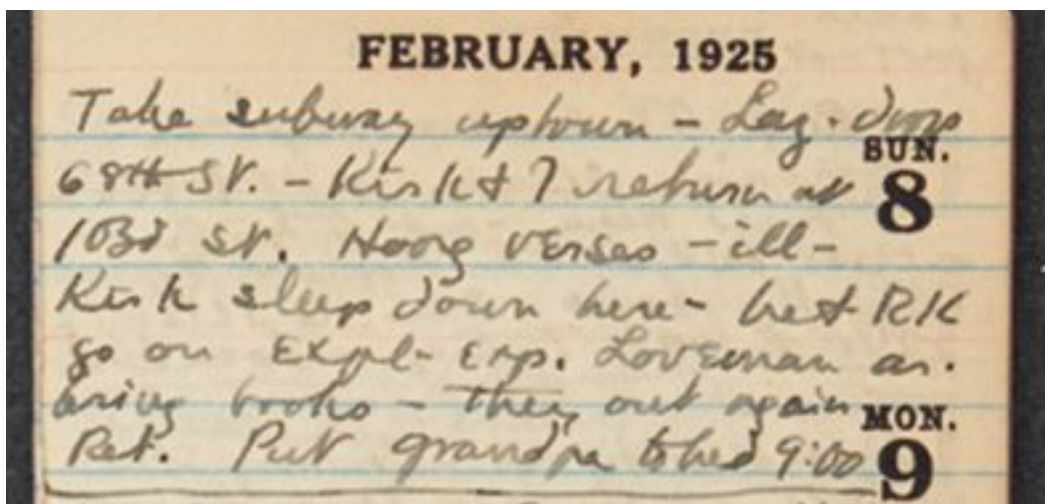 FEBRUARY, 1925
Take subway uptown – Leg. drops
SUN.
68th St. – Kirk & I return at
8
103d St. Hoag verses – ill –
Kirk sleep down here – he & RK
go on Expl. exp. Loveman ar.
bring books – they out again
MON.
Ret. Put grandpa to bed 9:00
9